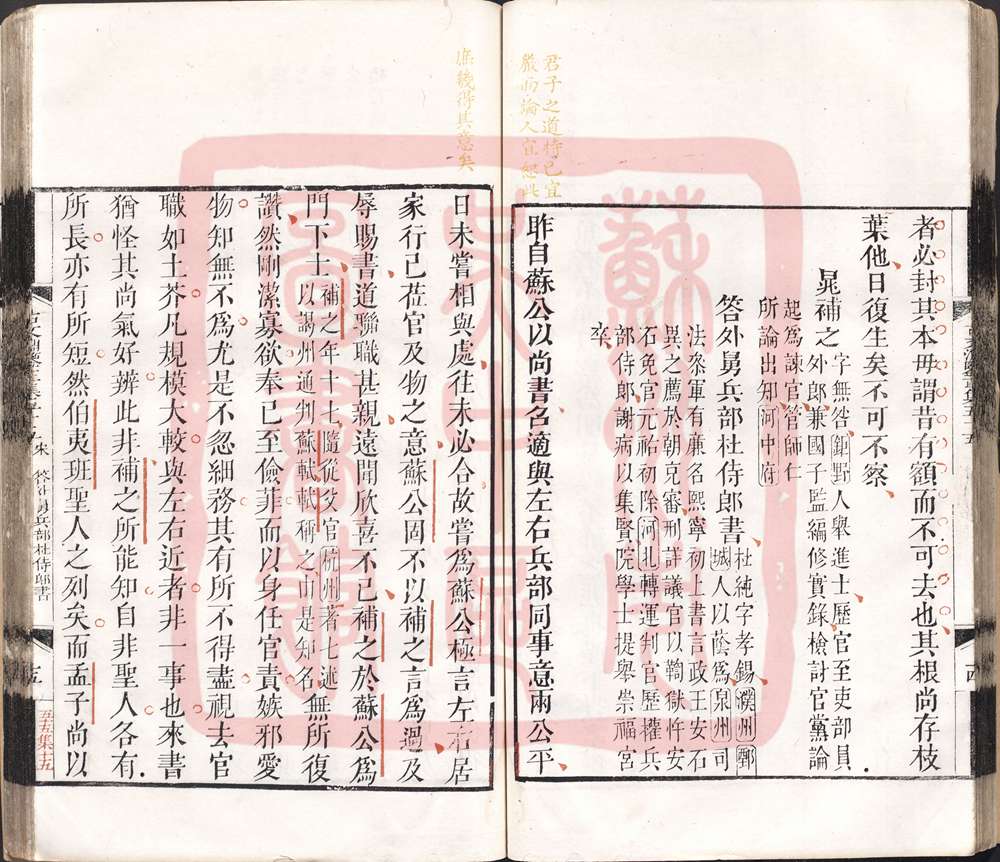 君子之道持己宜
嚴而論人宜恕此
庶幾得其意矣
者必封其本毋謂昔有額而不可去也其根尚存枝
葉他日復生矣不可不察
晁補之
字無咎鉅野人舉進士歷官至吏部員
外郎兼國子監編修實錄檢討官黨論
起爲諫官管師仁
所論出知河中府
答外舅兵部杜侍郎書
杜純字孝錫濮州鄄
城人以蔭爲泉州司
法叅軍有廉名熙寧初上書言政王安石
異之薦於朝克審刑詳議官以鞫獄忤安
石免官元祐初除河北轉運判官歷權兵
部侍郎謝病以集賢院學士提舉崇福宮
卒
昨自蘇公以尚書召適與左右兵部同事意兩公平
日未嘗相與處往未必合故嘗爲蘇公極言左右居
家行己莅官及物之意蘇公固不以補之言爲過及
辱賜書道聯職甚親遠聞欣喜不已補之於蘇公爲
門下士
補之年十七隨從父官杭州著七述
以謁州通判蘇軾軾稱之由是知名
無所復
讚然剛潔寡欲奉己至儉菲而以身任官責嫉邪愛
物知無不爲尤是不忍細務其有所不得盡視去官
職如土芥凡規模大較與左右近者非一事也來書
猶怪其尚氣好辨此非補之所能知自非聖人各有
所長亦有所短然伯夷班聖人之列矣而孟子尚以
宋
答外舅兵部杜侍郎書
十五
五集十五